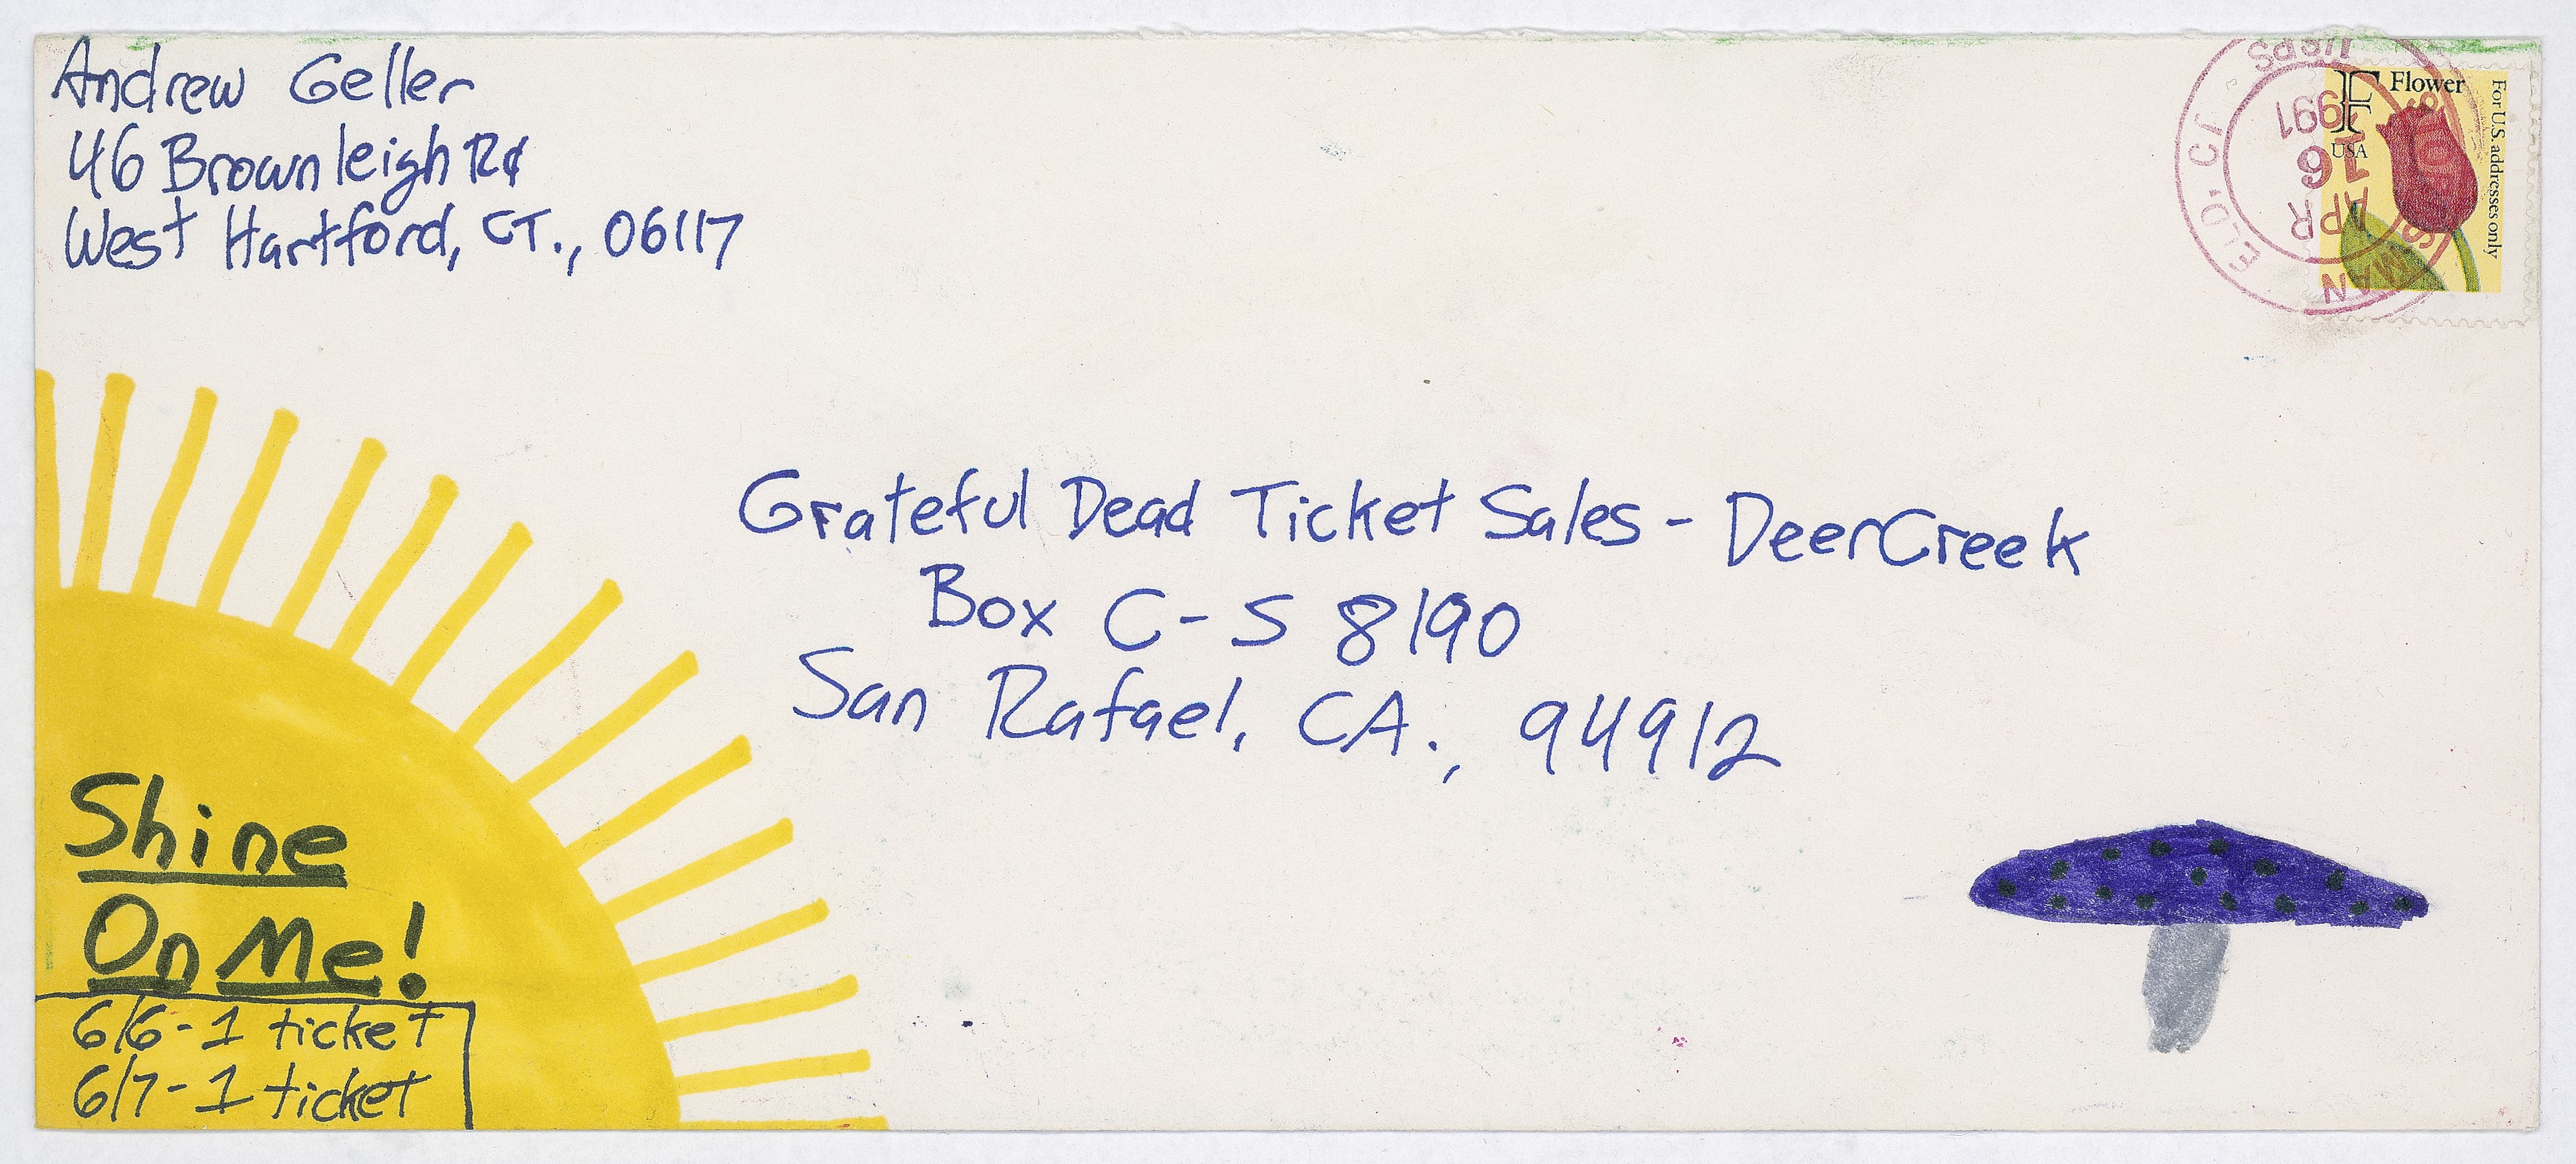 Andrew Geller
46 Brownleigh Rd
West Hartford, CT., 06117
USPS
MANSFIELD, CT
APR
16
1991
F Flower
USA
For U.S. addresses only
Grateful Dead Ticket Sales - DeerCreek
Box C-S 8190
San Rafael, CA., 94912
Shine
On Me!
6/6-1 ticket
6/7-1 ticket